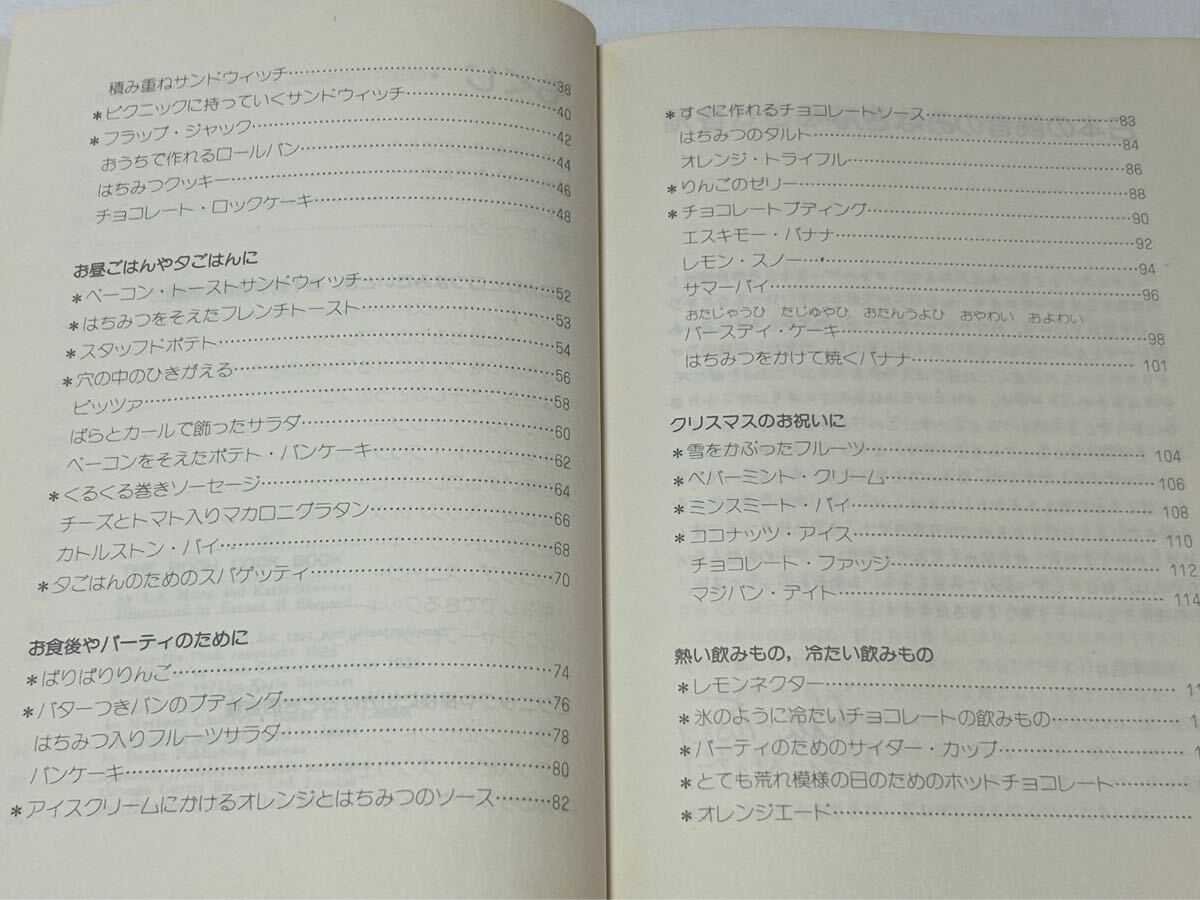 積み重ねサンドウィッチ……………………………38
＊ピクニックに持っていくサンドウィッチ……………40
＊フラップ・ジャック……………………………42
おうちで作れるロールパン……………………………44
はちみつクッキー……………………………46
チョコレート・ロックケーキ……………………………48
お昼ごはんや夕ごはんに
＊ベーコン・トーストサンドウィッチ……………………52
＊はちみつをそえたフレンチトースト……………………53
＊スタッフドポテト……………………………54
＊穴の中のひきがえる……………………………56
ピッツァ……………………………58
ばらとカールで飾ったサラダ……………………………60
ベーコンをそえたポテト・パンケーキ……………………62
＊くるくる巻きソーセージ……………………………64
チーズとトマト入りマカロニグラタン……………………66
カトルストン・パイ……………………………68
＊夕ごはんのためのスパゲッティ……………………………70
お食後やパーティのために
＊ぱりぱりりんご……………………………74
＊バターつきパンのプディング……………………………76
はちみつ入りフルーツサラダ……………………………78
パンケーキ……………………………80
＊アイスクリームにかけるオレンジとはちみつのソース………82
＊すぐに作れるチョコレートソース……………………83
はちみつのタルト……………………………84
オレンジ・トライフル……………………………86
＊りんごのゼリー……………………………88
＊チョコレートプディング……………………………90
エスキモー・バナナ……………………………92
レモン・スノー……………………………94
サマーパイ……………………………96
おたじゃうひ　たじゅやひ　おたんうよひ　おやわい　およわい
バースデイ・ケーキ……………………………98
はちみつをかけて焼くバナナ……………………………101
クリスマスのお祝いに
＊雪をかぶったフルーツ……………………………104
＊ペパーミント・クリーム……………………………106
＊ミンスミート・パイ……………………………108
＊ココナッツ・アイス……………………………110
チョコレート・ファッジ……………………………112
マジパン・デイト……………………………114
熱い飲みもの，冷たい飲みもの
＊レモンネクター……………………………11
＊氷のように冷たいチョコレートの飲みもの……………1
＊パーティのためのサイダー・カップ……………………1
＊とても荒れ模様の日のためのホットチョコレート………
＊オレンジエード……………………………